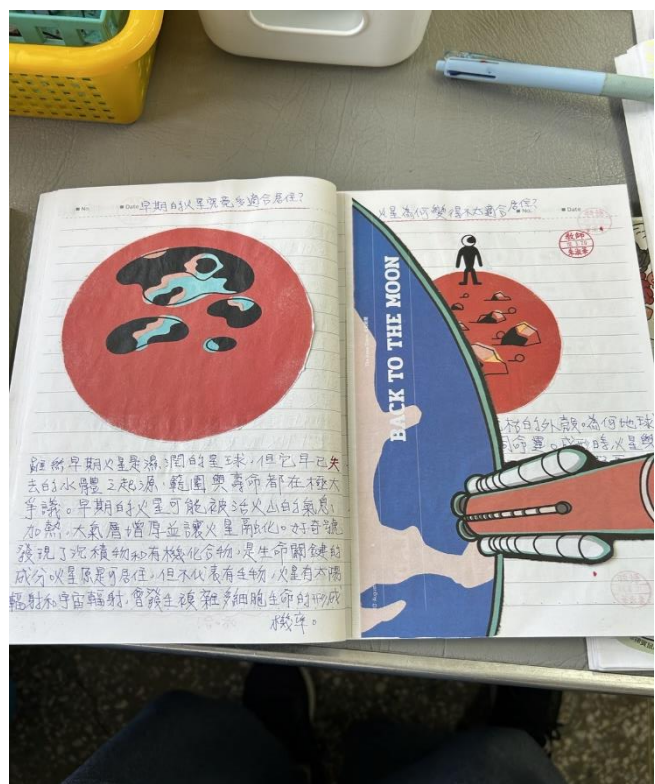 No.
Date
早期的火星究竟多適合居住?
雖然早期火星是濕潤的星球,但它早已失
去的水體之起源、範圍與壽命都存在極大
爭議。早期的火星可能被治火山的氣息
加熱,大氣層增厚並讓火星融化。好奇號
發現了沉積物和有機化合物,是生命關鍵的
成分。火星原是可居住,但不代表有生物,火星有太陽
輻射和宇宙輻射,會發生複雜多細胞生命的形成
機率。
火星為何變得不太適合居住?
No.
Date
教師
BACK TO THE MOON
枯的外貌。為何地球
同命運。成形時火星